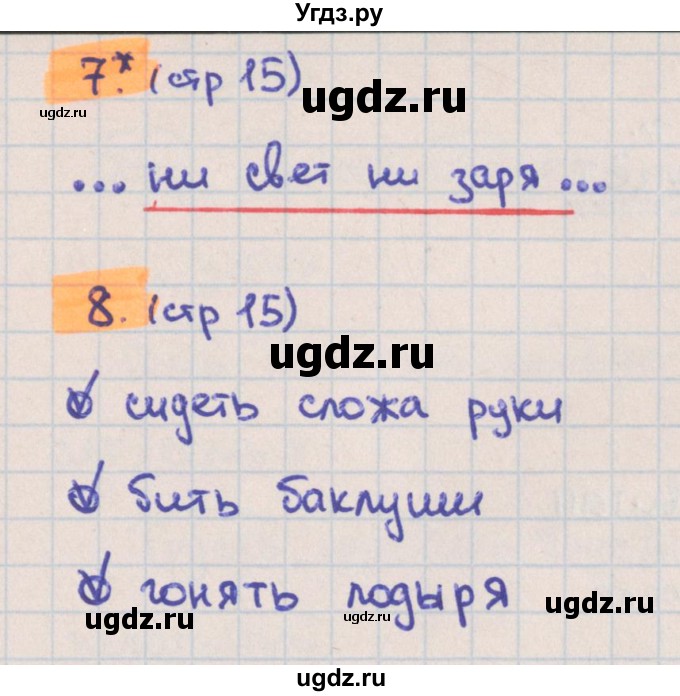 Угдз.ру
7.* (стр 15)
ugdz.ru
ugdz.ru
... ни свет ни заря ...
8. (стр 15)
ugdz.ru
ugdz.ru
сидеть сложа руки
бить баклуши
гонять лодыря
ugdz.ru
ugdz.ru
ugdz.ru
ugdz.ru